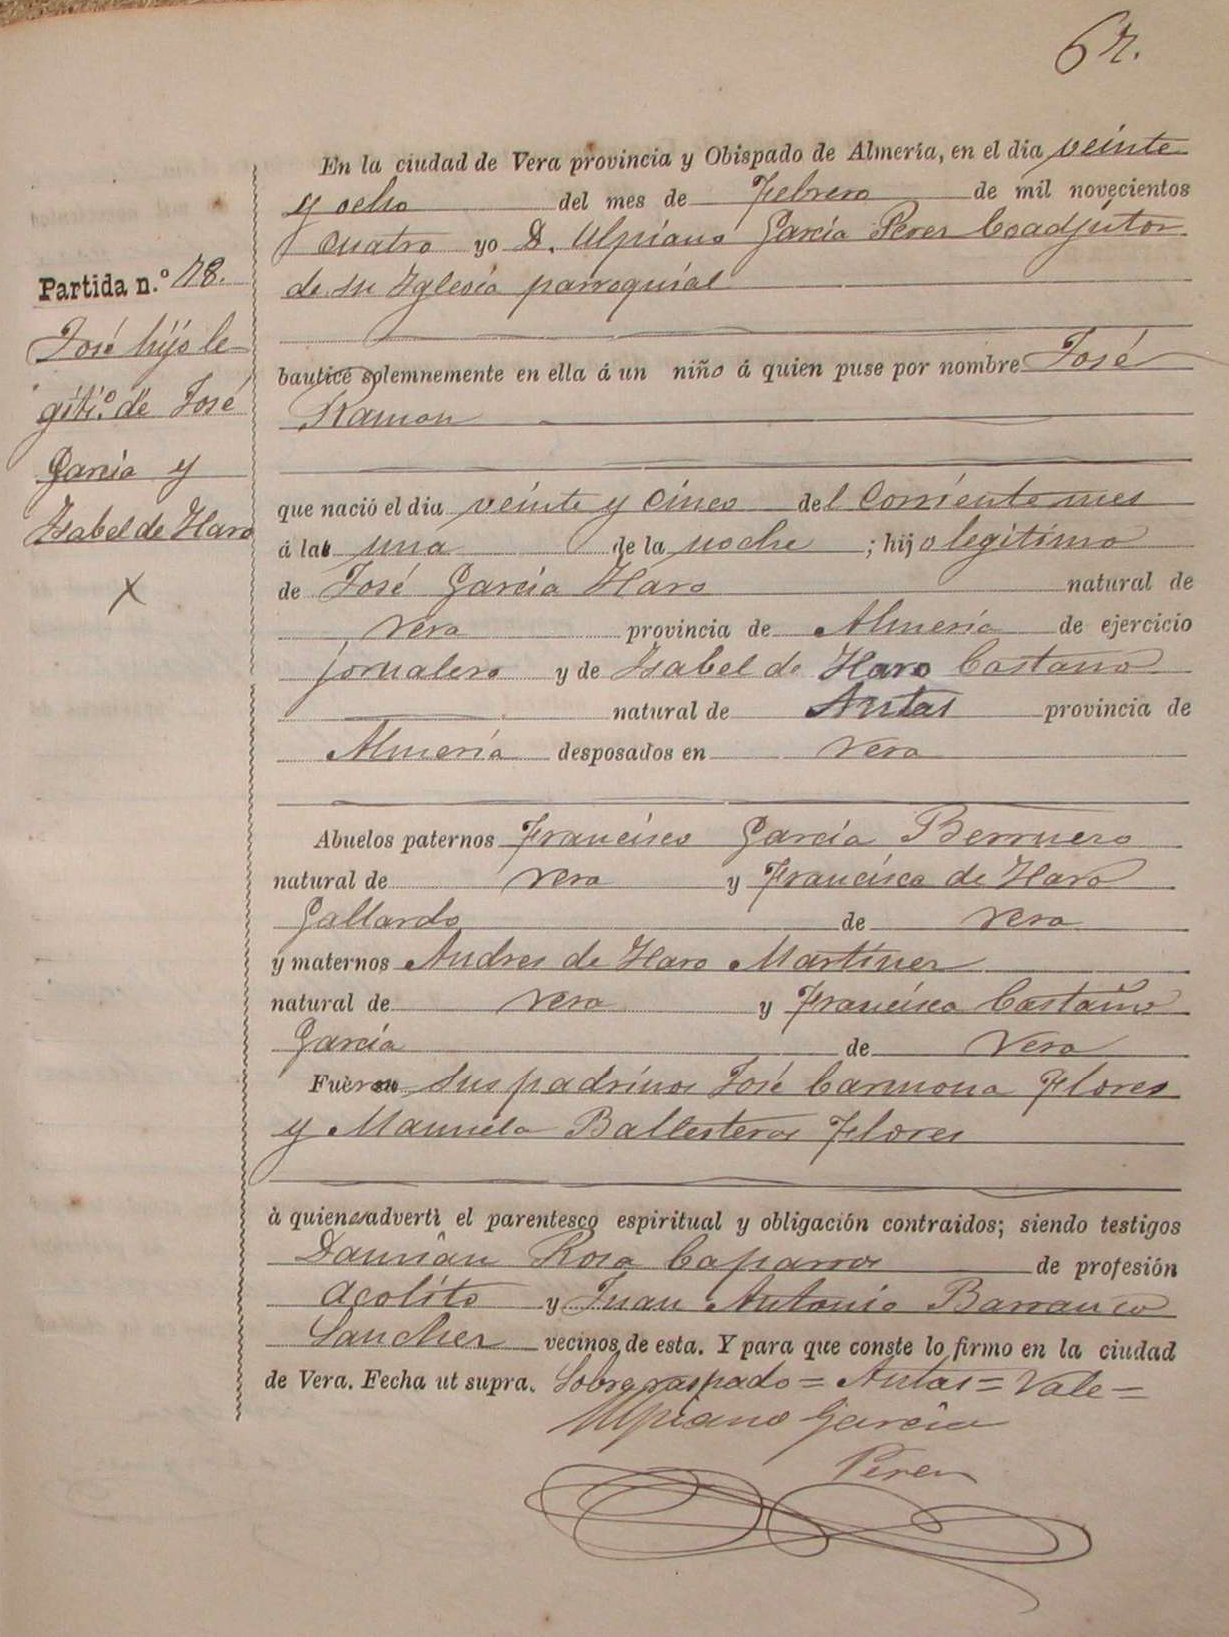 67.
En la ciudad de Vera provincia y Obispado de Almería, en el día veinte
y ocho del mes de Febrero de mil novecientos
cuatro yo D. Ulpiano García Perez Coadjutor
de su Iglesia parroquial
Partida n.º 78.
José hijo le-
gíti.º de José
García y
Isabel de Haro
X
bauticé solemnemente en ella á un niño á quien puse por nombre José
Ramon
que nació el día veinte y cinco del Corriente mes
á la una de la noche ; hijo legítimo
de José García Haro natural de
Vera provincia de Almería de ejercicio
jornalero y de Isabel de Haro Castaño
natural de Antas provincia de
Almería desposados en Vera
Abuelos paternos Francisco García Berruezo
natural de Vera y Francisca de Haro
Gallardo de Vera
y maternos Andres de Haro Martínez
natural de Vera y Francisca Castaño
García de Vera
Fueron sus padrinos José Carmona Flores
y Manuela Ballesteros Flores
à quienes advertì el parentesco espiritual y obligación contraidos; siendo testigos
Damián Rosa Caparros de profesión
Acolito y Juan Antonio Barranco
Sanchez vecinos de esta. Y para que conste lo firmo en la ciudad
de Vera. Fecha ut supra. Sobre raspado = Antas = Vale =
Ulpiano García
Perez